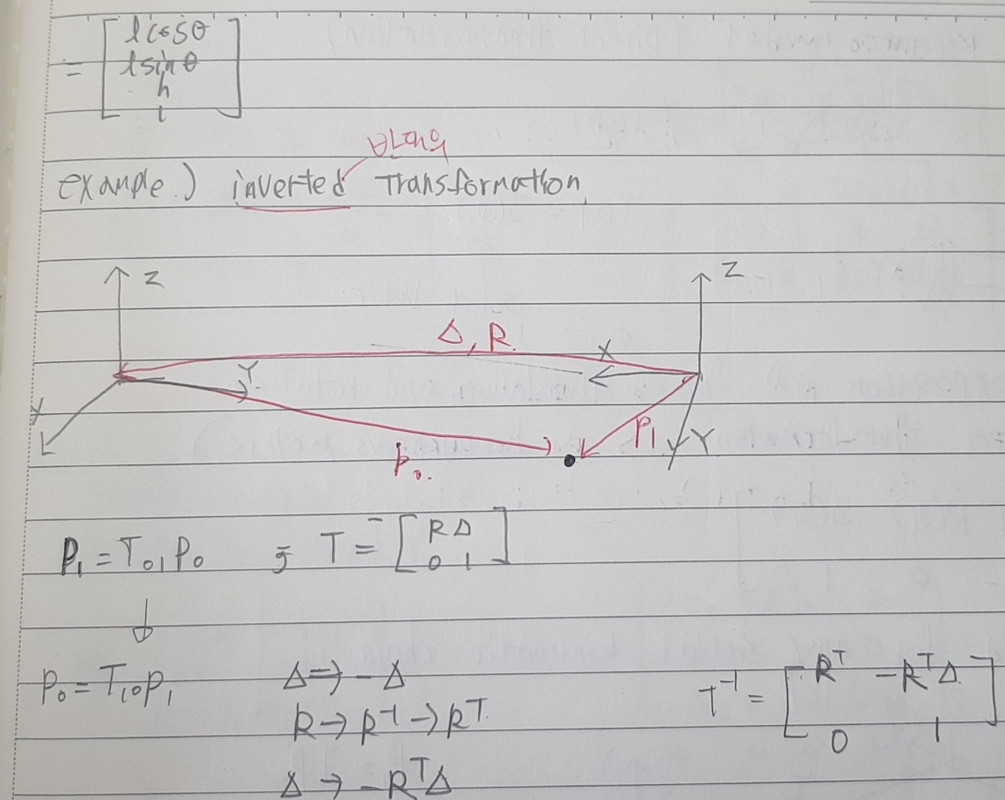 = [ lcosθ
lsinθ
h
1 ]
example.) inverted Transformation
Z
Z
Δ, R
X
Y
X
P₁
Y
P₀.
P₁ = T₀₁P₀ 즉 T = [ R Δ
0 1 ]
↓
P₀ = T₁₀P₁ Δ ⇒ -Δ T⁻¹ = [ Rᵀ -RᵀΔ
R → R⁻¹ → Rᵀ 0 1 ]
Δ → -RᵀΔ